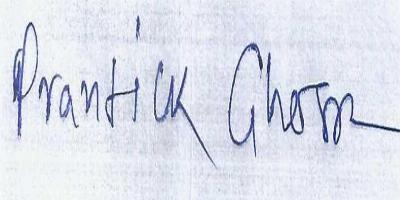 Prantick Ghosh